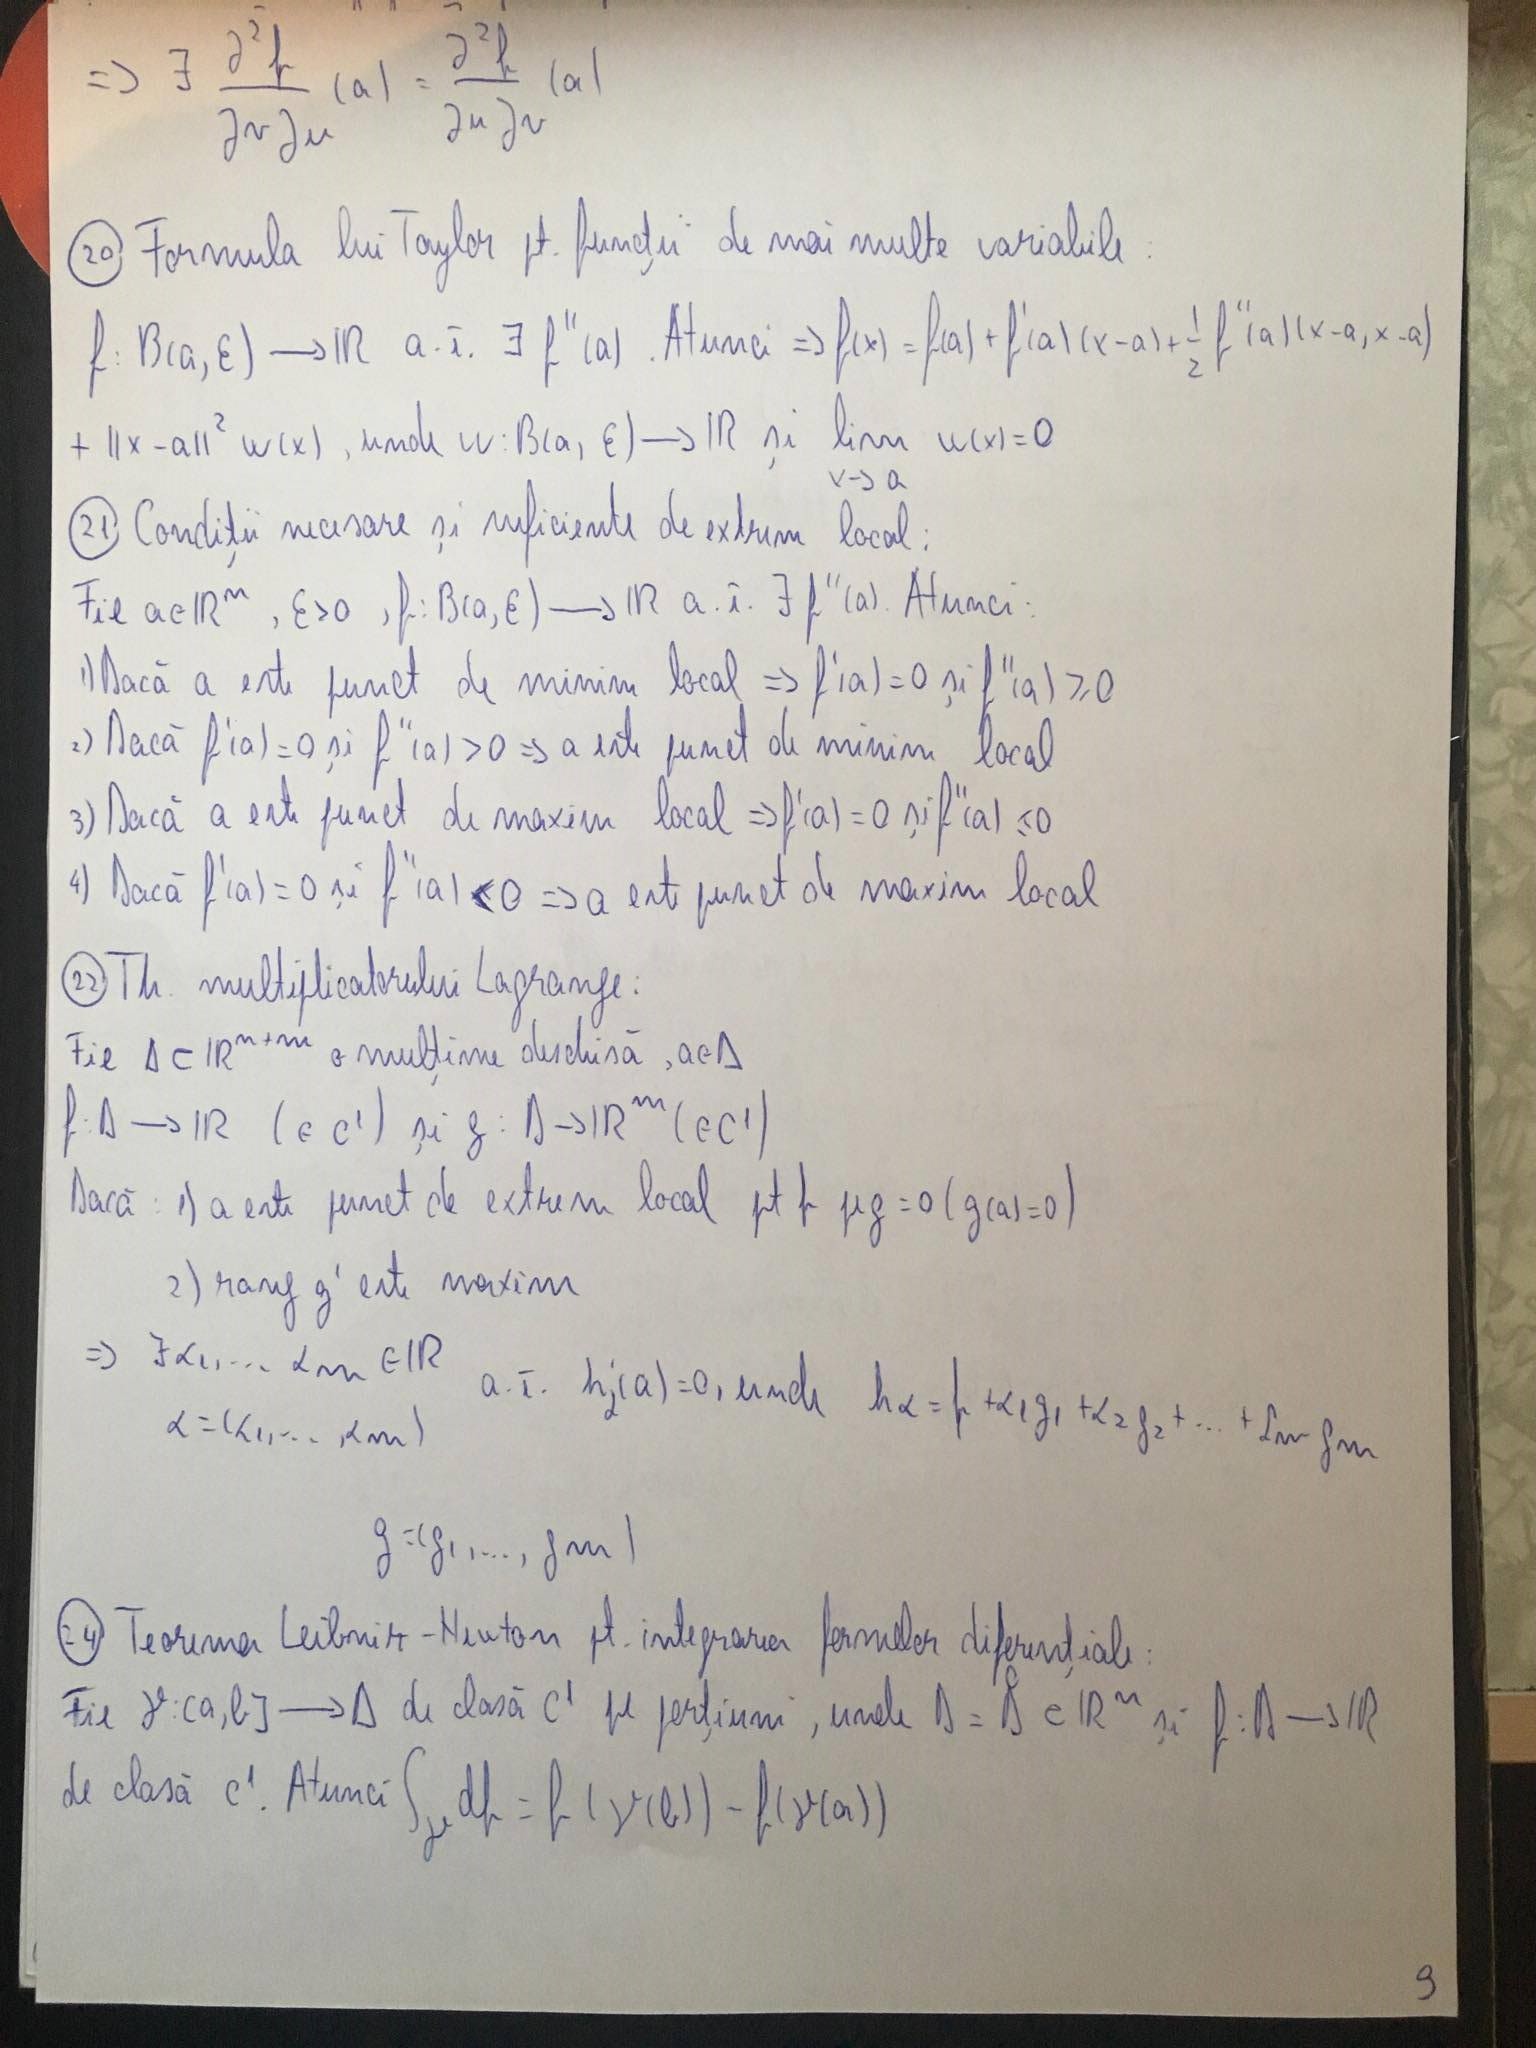 => ∃ ∂²f/∂v∂u (a) = ∂²f/∂u∂v (a)
(20) Formula lui Taylor pt. funcții de mai multe variabile:
f: B(a, ε) → ℝ a.î. ∃ f''(a). Atunci => f(x) = f(a) + f'(a)(x-a) + 1/2 f''(a)(x-a, x-a)
+ ||x-a||² w(x), unde w: B(a, ε) → ℝ și lim w(x) = 0
x→a
(21) Condiții necesare și suficiente de extrem local:
Fie a∈ℝⁿ, ε>0, f: B(a, ε) → ℝ a.î. ∃ f''(a). Atunci:
1) Dacă a este punct de minim local => f'(a) = 0 și f''(a) ≥ 0
2) Dacă f'(a) = 0 și f''(a) > 0 => a este punct de minim local
3) Dacă a este punct de maxim local => f'(a) = 0 și f''(a) ≤ 0
4) Dacă f'(a) = 0 și f''(a) < 0 => a este punct de maxim local
(22) Th. multiplicatorului Lagrange:
Fie D⊂ℝⁿ⁺ᵐ o mulțime deschisă, a∈D
f: D → ℝ (∈ C¹) și g: D → ℝᵐ (∈ C¹)
Dacă: 1) a este punct de extrem local pt f pe g = 0 (g(a) = 0)
2) rang g' este maxim
=> ∃ α₁, ... αₘ ∈ ℝ a.î. h'α(a) = 0, unde hα = f + α₁g₁ + α₂g₂ + ... + αₘgₘ
α = (α₁, ..., αₘ)
g = (g₁, ..., gₘ)
(24) Teorema Leibniz-Newton pt. integrarea formelor diferențiale:
Fie γ: [a, b] → D de clasă C¹ pe porțiuni, unde D = D̊ ⊂ ℝⁿ și f: D → ℝ
de clasă C¹. Atunci ∫γ df = f(γ(b)) - f(γ(a))
9